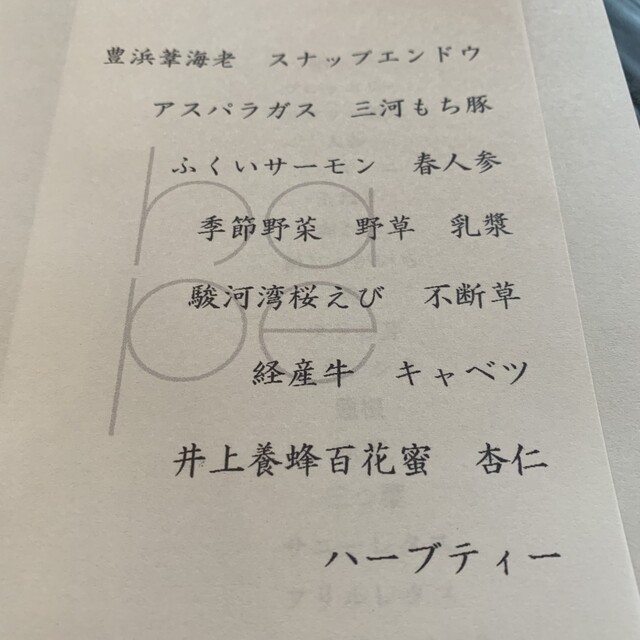 豊浜葦海老　スナップエンドウ
アスパラガス　三河もち豚
ふくいサーモン　春人参
季節野菜　野草　乳漿
駿河湾桜えび　不断草
経産牛　キャベツ
井上養蜂百花蜜　杏仁
ハーブティー
ha
pe